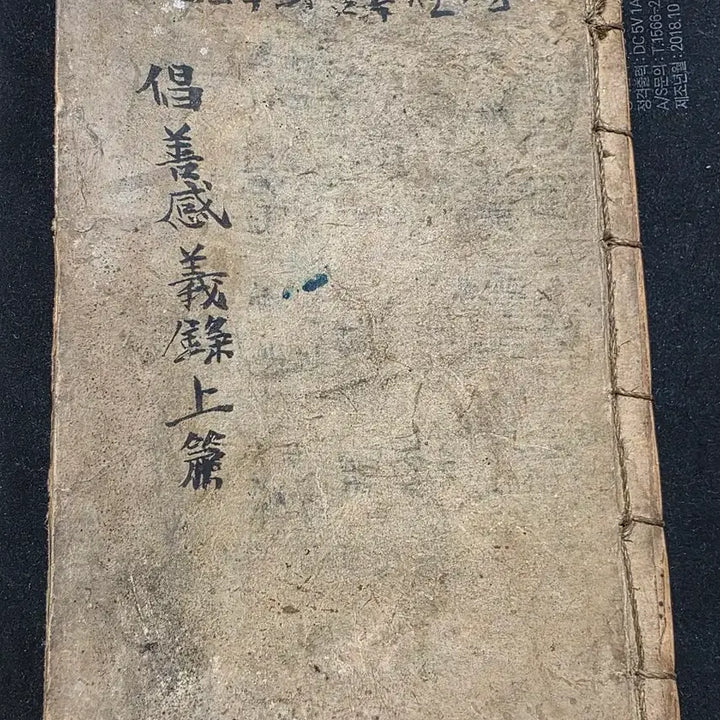 倡善感義錄上篇
정격출력 : DC 5V 1A
A/S문의 : T.1566-2
제조년월 : 2018.10